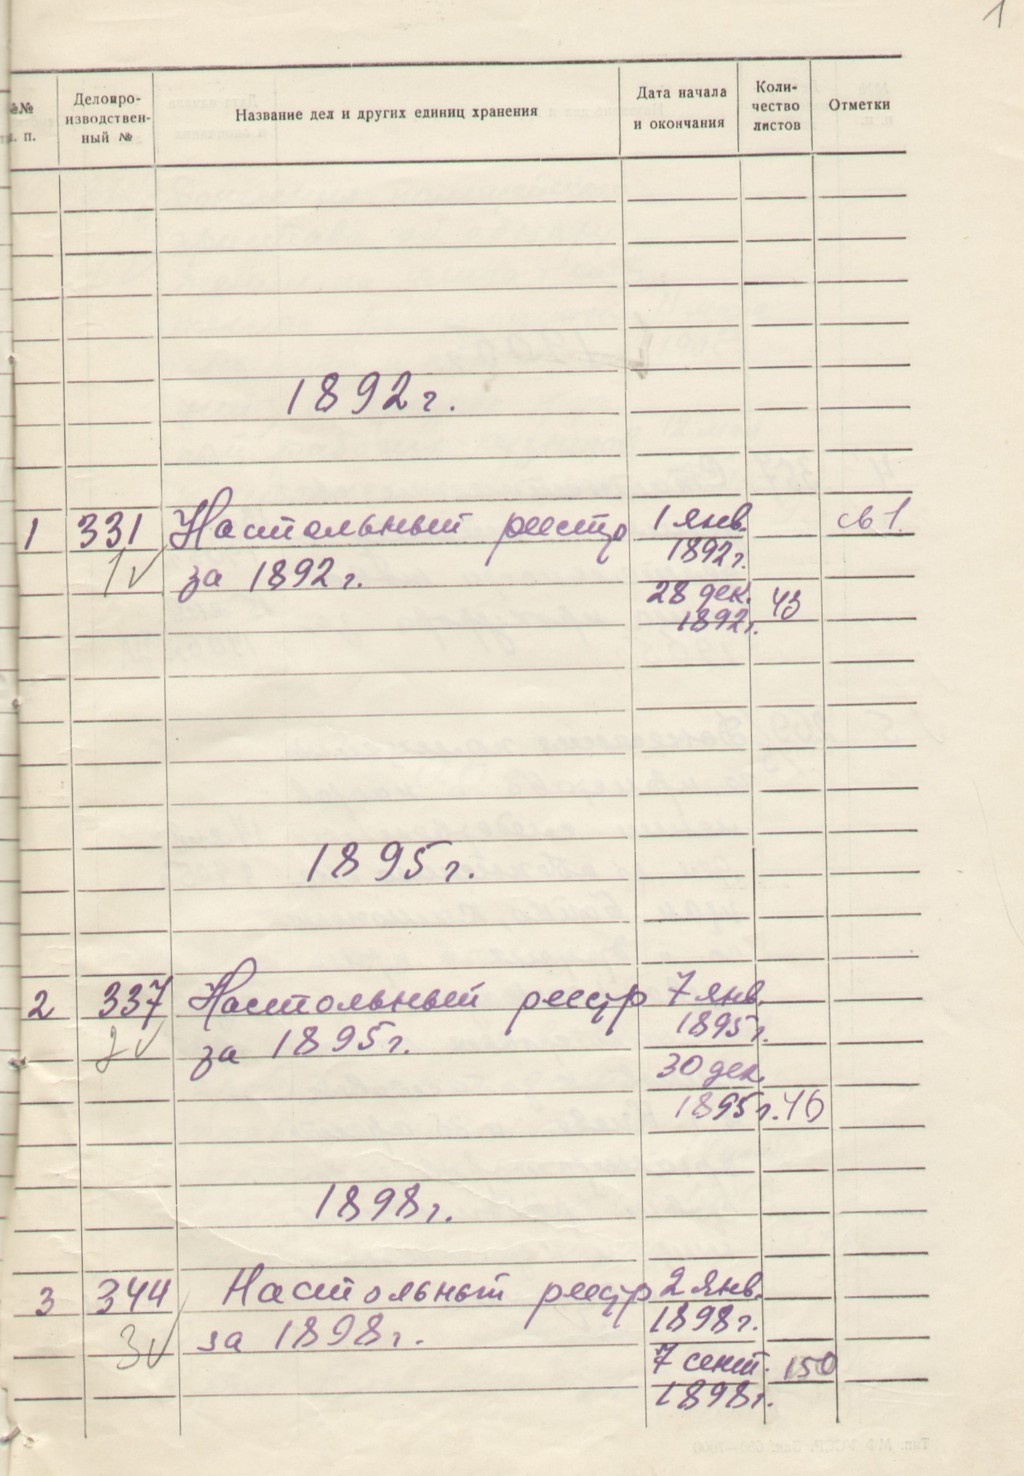 1
№№ п. п.
Делопро-
изводствен-
ный №
Название дел и других единиц хранения
Дата начала
и окончания
Коли-
чество
листов
Отметки
1892 г.
1 331 Настольный реестр 1 янв. св 1.
1 за 1892 г. 1892 г.
28 дек. 43
1892 г.
1895 г.
2 337 Настольный реестр 7 янв.
2 за 1895 г. 1895 г.
30 дек.
1895 г. 46
1898 г.
3 344 Настольный реестр 2 янв.
3 за 1898 г. 1898 г.
7 сент. 150
1898 г.